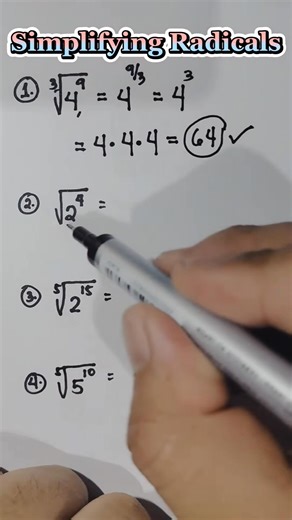 Simplifying Radicals
1. ∛4⁹ = 4^9/3 = 4³
= 4·4·4 = 64 ✓
2. √2⁴ =
3. ⁵√2¹⁵ =
4. ⁵√5¹⁰ =